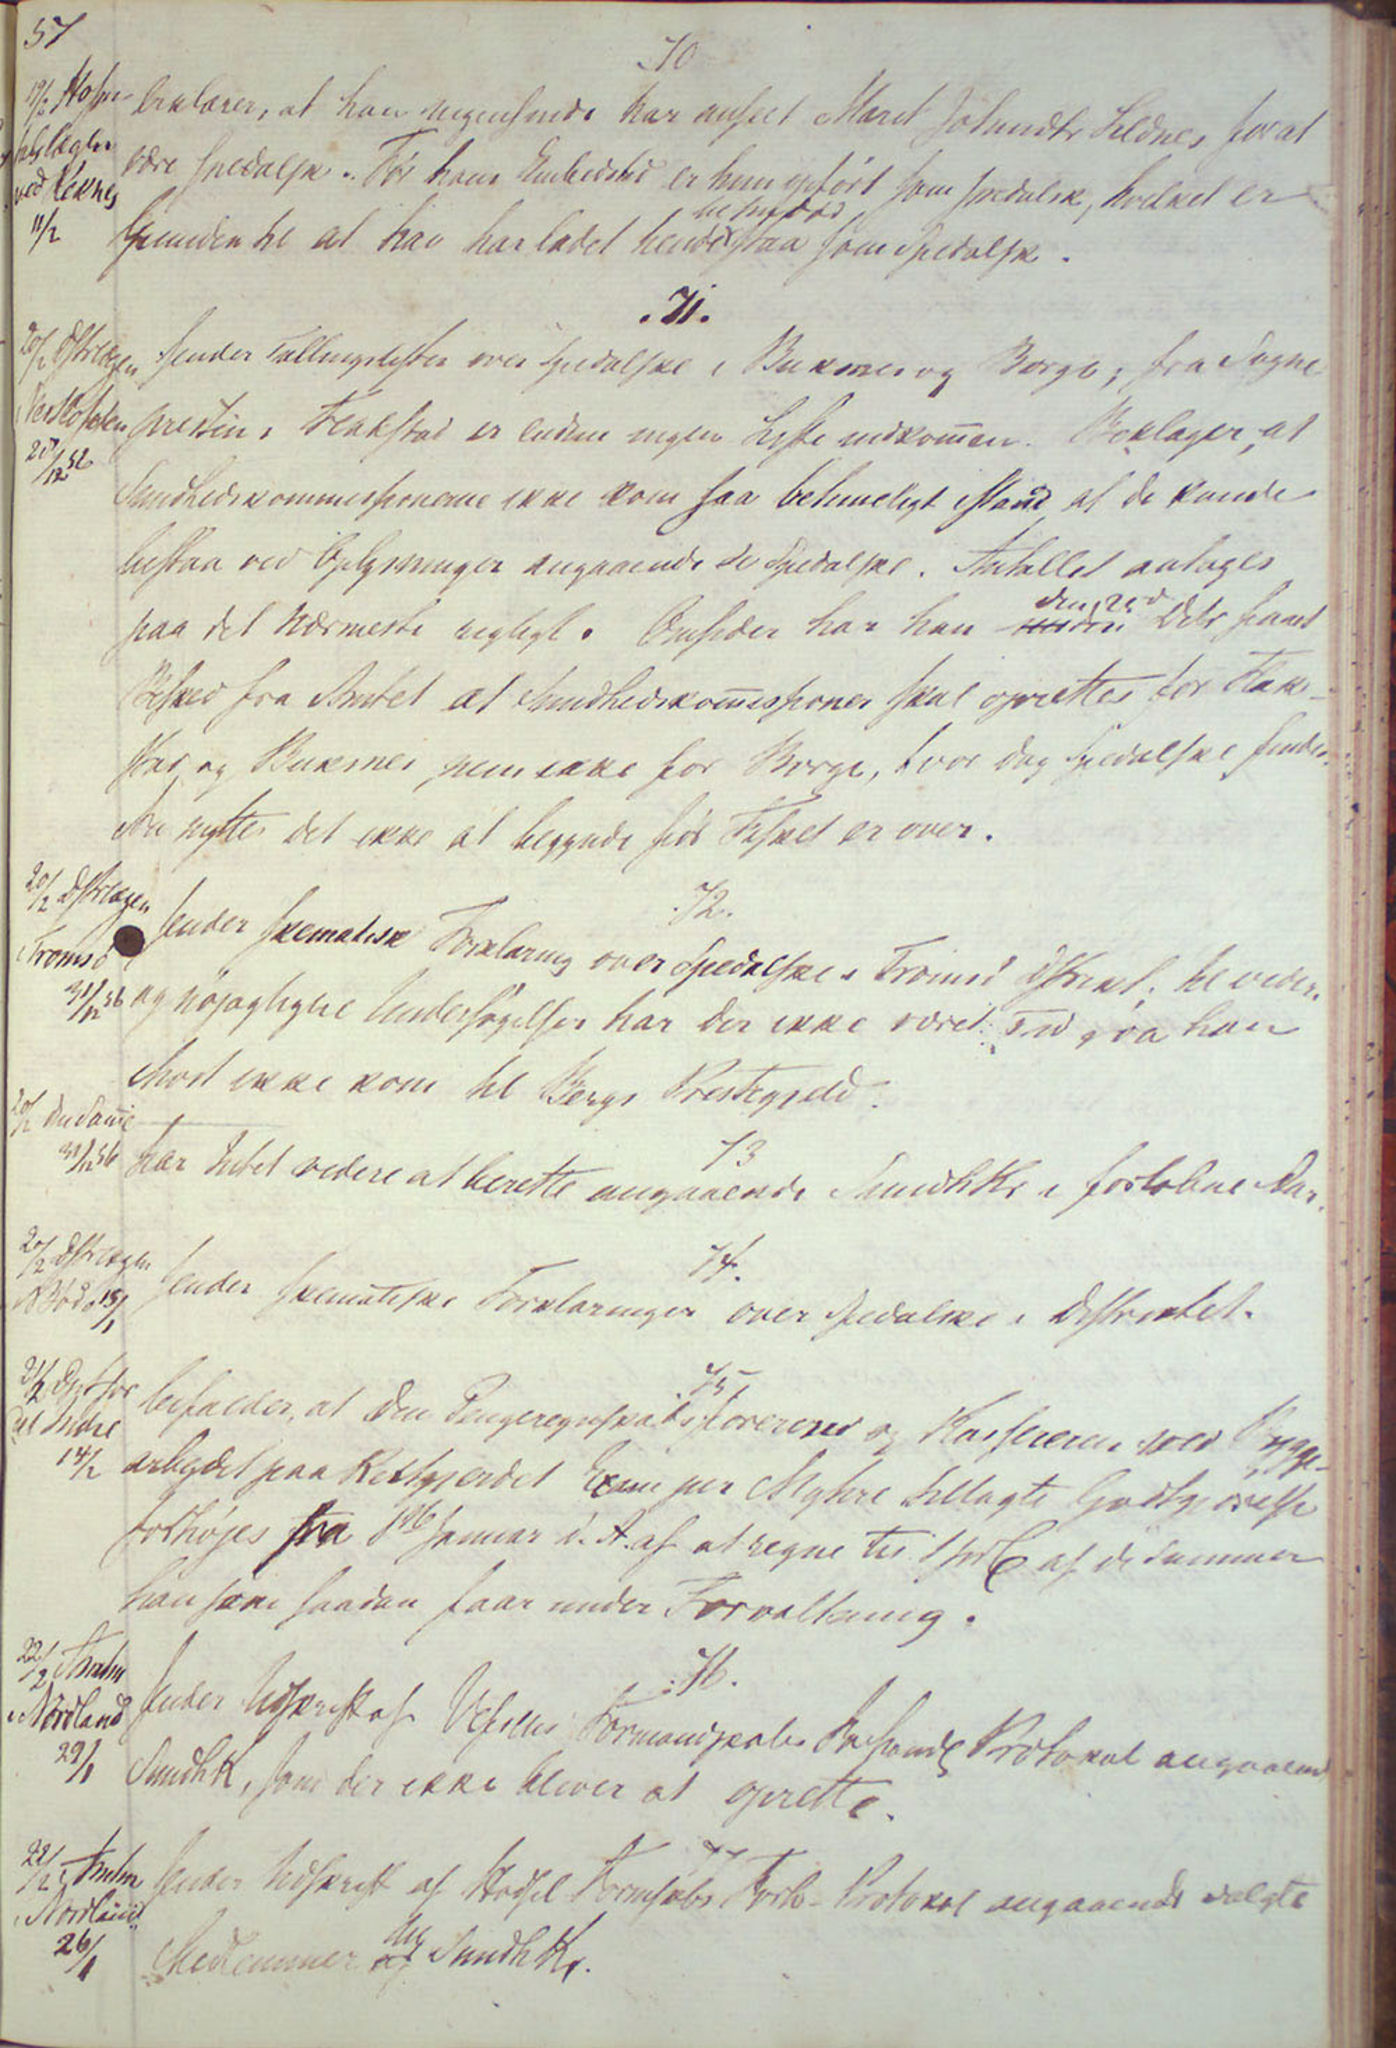 57
70
19/2 Hospi-
talslægen
ved Reknes
11/2
Erklærer, at han ingensinde har anseet Marit Johnsdtr Seldnes for at
være spedalsk. Før hans Embedstid er hun opført som spedalsk, hvilket er
Grunden til at han har ladet hende staa som spedalsk.
.71.
20/2 Dstrlægen
i Vestlofoten
27/12 52
Sender Tællingslister over spedalske i Buksnes og Borge; fra Sogne-
presten i Flakstad er endnu ingen Liste indkommen. Beklager, at
Sundhedskommissionerne ikke kom saa betimeligt istand at de kunde
bistaa ved Oplysninger angaaende de Spedalske. Antallet antages
paa det Nærmeste rigtigt. Omsider har han den 25d Dcbr faaet
Besked fra Amtet at Sundhedskommissioner skal oprettes for Flak-
stad og Buksnes men ikke for Borge, hvor dog Spedalske findes.
Nu nytter det ikke at begynde før Fisket er over.
72.
20/2 Dstrlægen
i Tromsø
31/12 56
Sender skematisk Forklaring over Spedalske i Tromsø Dstrikt; til videre
og nøjagtigere Undersøgelser har der ikke været Tid, saa han
ikke kom til Bergs Prestegjeld.
73
20/2 Den Samme
31/12 56
Har Intet videre at berette angaaende SundhKs i forløbne Aar.
74.
20/2 Dstrlægen
i Bodø 15/1
Sender skematiske Forklaringer over Spedalske i Distriktet.
75.
21/2 Dpt for
det Indre
14/2
befalder, at den Pengeregnskabsfører og Kasserer ved Bygge-
arbejdet paa Reitgjerdet per Myhre tillagte Godtgjørelse
forhøjes fra 1ste Januar d. A. af at regne til 1 prC af de Summer
han som saadan faar under Forvaltning.
76.
22/2 Amtm
i Nordland
29/1
Sender Udskrift af Vefsens Formandskabs Forhandls Protokol angaaende
SundhK, som der ikke bliver at oprette.
77
22/2 Amtm
i Nordland
26/1
Sender Udskrift af Hadsel Formskabs Forh- Protokol angaaende valgte
Medlemmer af SundhKs.